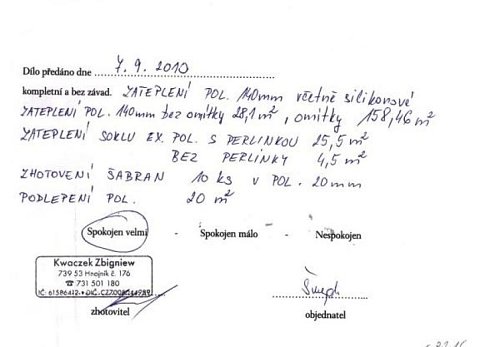 Dílo předáno dne 7. 9. 2010
kompletní a bez závad. ZATEPLENÍ POL. 140mm včetně silikonové
ZATEPLENÍ POL. 140mm bez omítky 28,1 m², omítky 158,46 m²
ZATEPLENÍ SOKLU EX. POL. S PERLINKOU 25,5 m²
BEZ PERLINKY 4,5 m²
ZHOTOVENÍ ŠABRAN 10 ks v POL. 20mm
PODLEPENÍ POL. 20 m²
Spokojen velmi - Spokojen málo - Nespokojen
Kwaczek Zbigniew
739 53 Hnojník č. 176
☎ 731 501 180
IČ: 61586412 • DIČ:
zhotovitel
objednatel